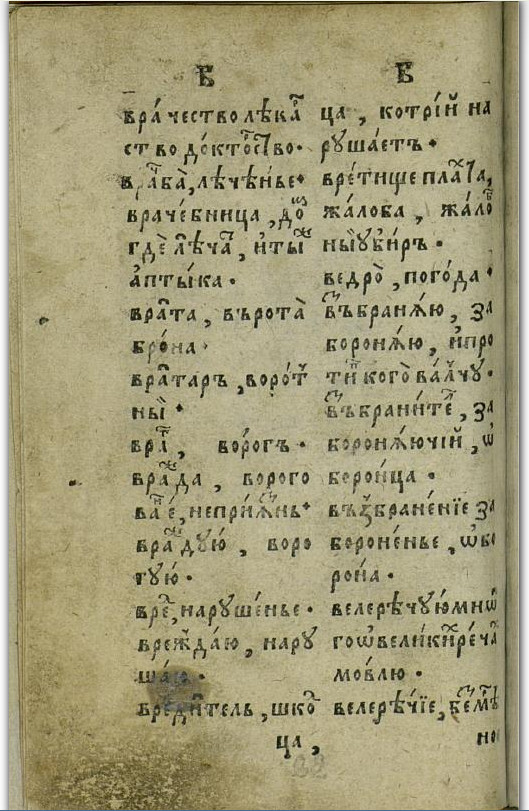 В
вра́чество лѣка
ство до́кто́ство.
враба̀, лѣче́нье.
враче́бница, до
гдѐ лѣча, и҆ты
а҆пты́ка.
врата, въро́та̀
бро́на.
вратаръ, ворот
ны̀.
вра, во́рогъ.
вражда, ворого
ва́е, неприѧ́нь.
враду́ю, воро
гу́ю.
вре, наруше́нье.
врежда́ю, нару
ша́ю.
вреди́тель, шко
ца,
В
ца, котрі́й на
руша́етъ.
вре́тище пла,
жа́лоба, жало
ны́ уби́ръ.
ведро̀, пого́да.
въбранѧ́ю, за
боронѧ́ю, и҆про
ти кого̀ ва́лчу.
въбрани́те, за
боронѧ́ючій, ѡ
боро́нца.
възбране́нїе за
бороне́нье, ѡбо
ро́на.
велерѣчу́ю мнѡ
гоѡвеликире́ча
мо́влю.
велерѣ́чїе,
но